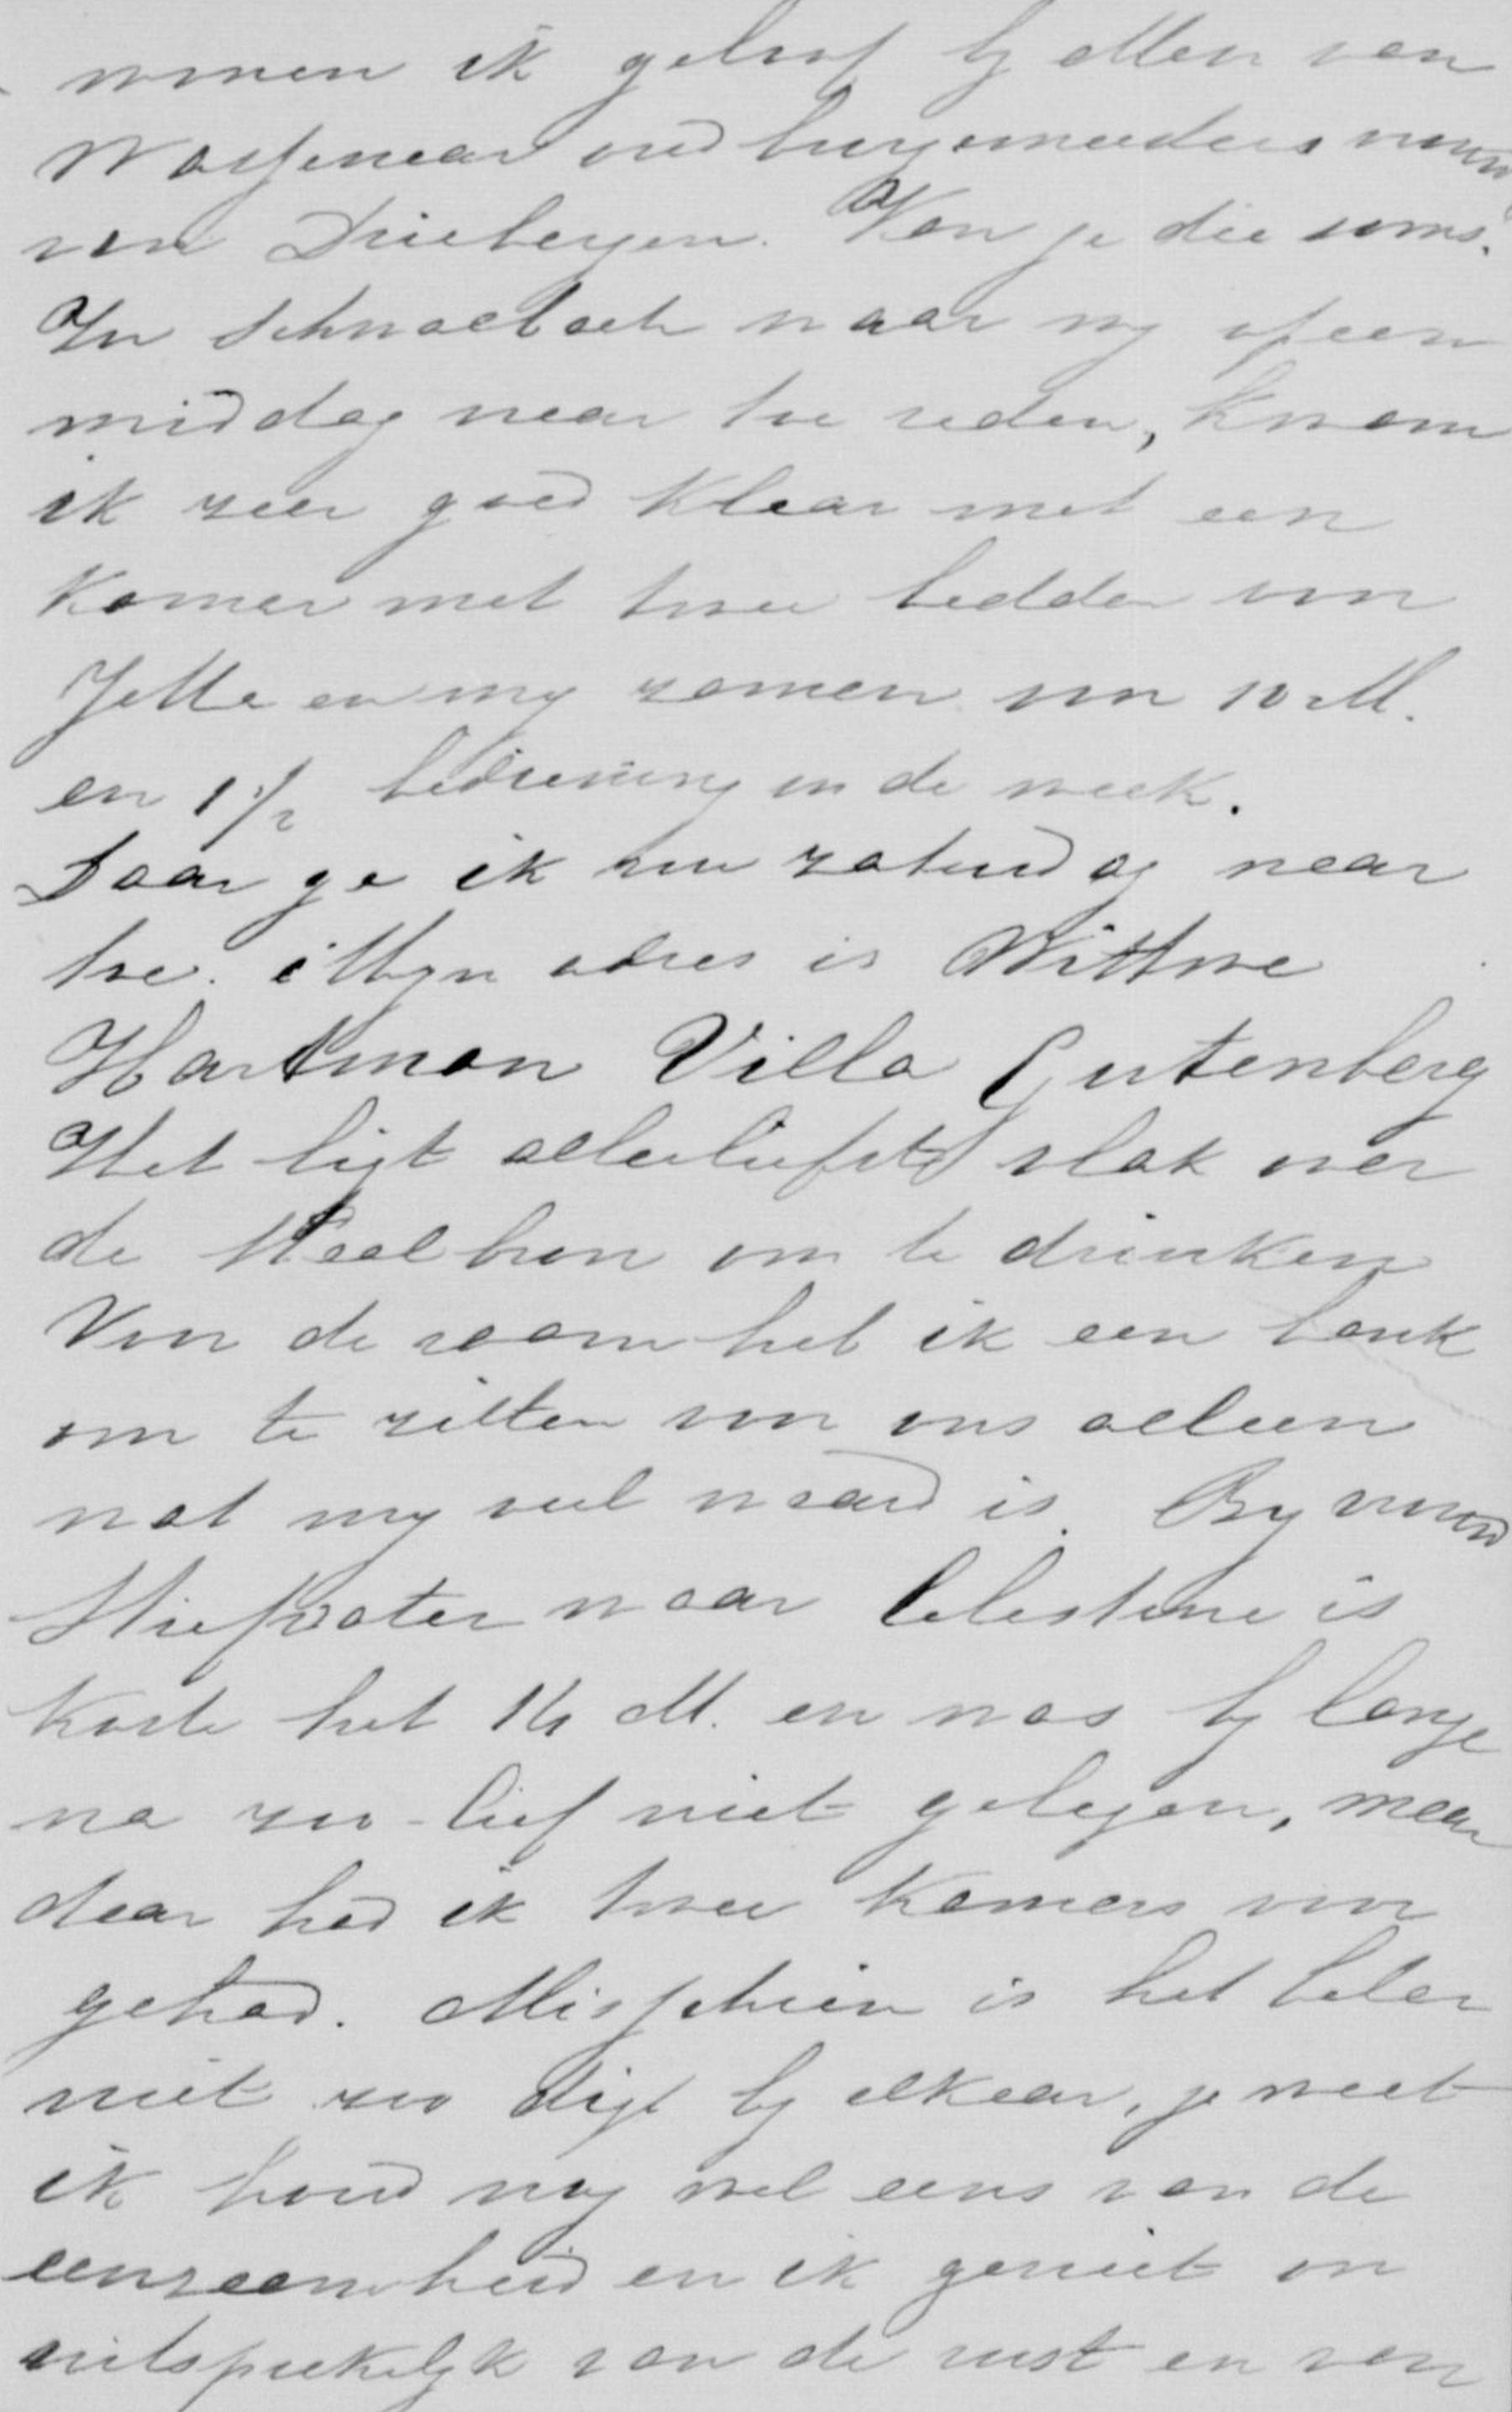 wonen ik geloof bij Mev van
Wassenaar oud burgemeesters vrouw
van Driebergen. Ken je die soms.
In Schwalbach waar wij opeen
middag naar toe reden, kwam
ik zeer goed klaar met een
Kamer met twee bedden voor
Jette en mij zamen voor 10 M.
en 1 1/2 bediening in de week.
Daar ga ik nu zaturdag naar
toe. Mijn adres is Wittwe
Hartman Villa Gutenberg
Het ligt allerliefst vlak over
de Staalbron om te drinken
Voor de raam heb ik een bank
om te zitten voor ons alleen
wat mij veel waard is. Bij vrouw
Stiefvater waar Celestine is
koste het 14 M. en was bij lange
na zoo lief niet gelegen, maar
daar had ik twee kamers voor
gehad. Misschien is het beter
niet zoo digt bij elkaar, je weet
ik houd nog wel eens van de
eenzaamheid en ik geniet on
uitsprekelijk van de rust en van